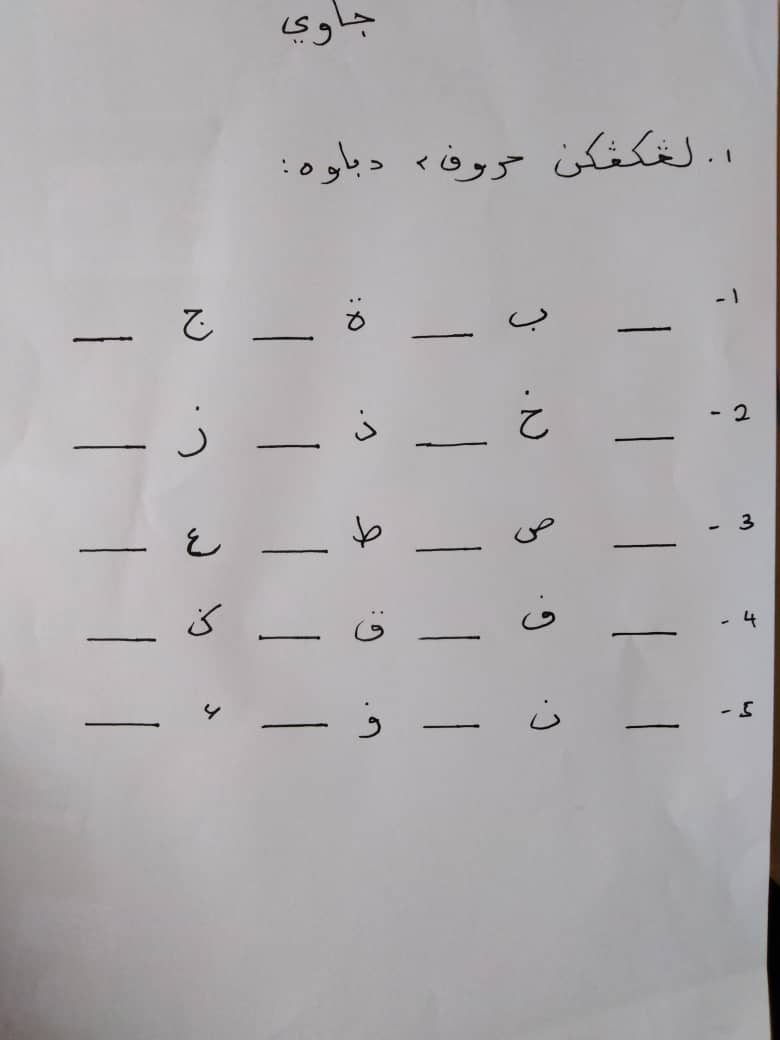 جاوي
١. لڠکڤکن حروف٢ دباوه:
١- __ ب __ ة __ ج __
2- __ خ __ ذ __ ز __
3- __ ص __ ط __ ع __
4- __ ف __ ق __ ݢ __
5- __ ن __ ۏ __ ء __